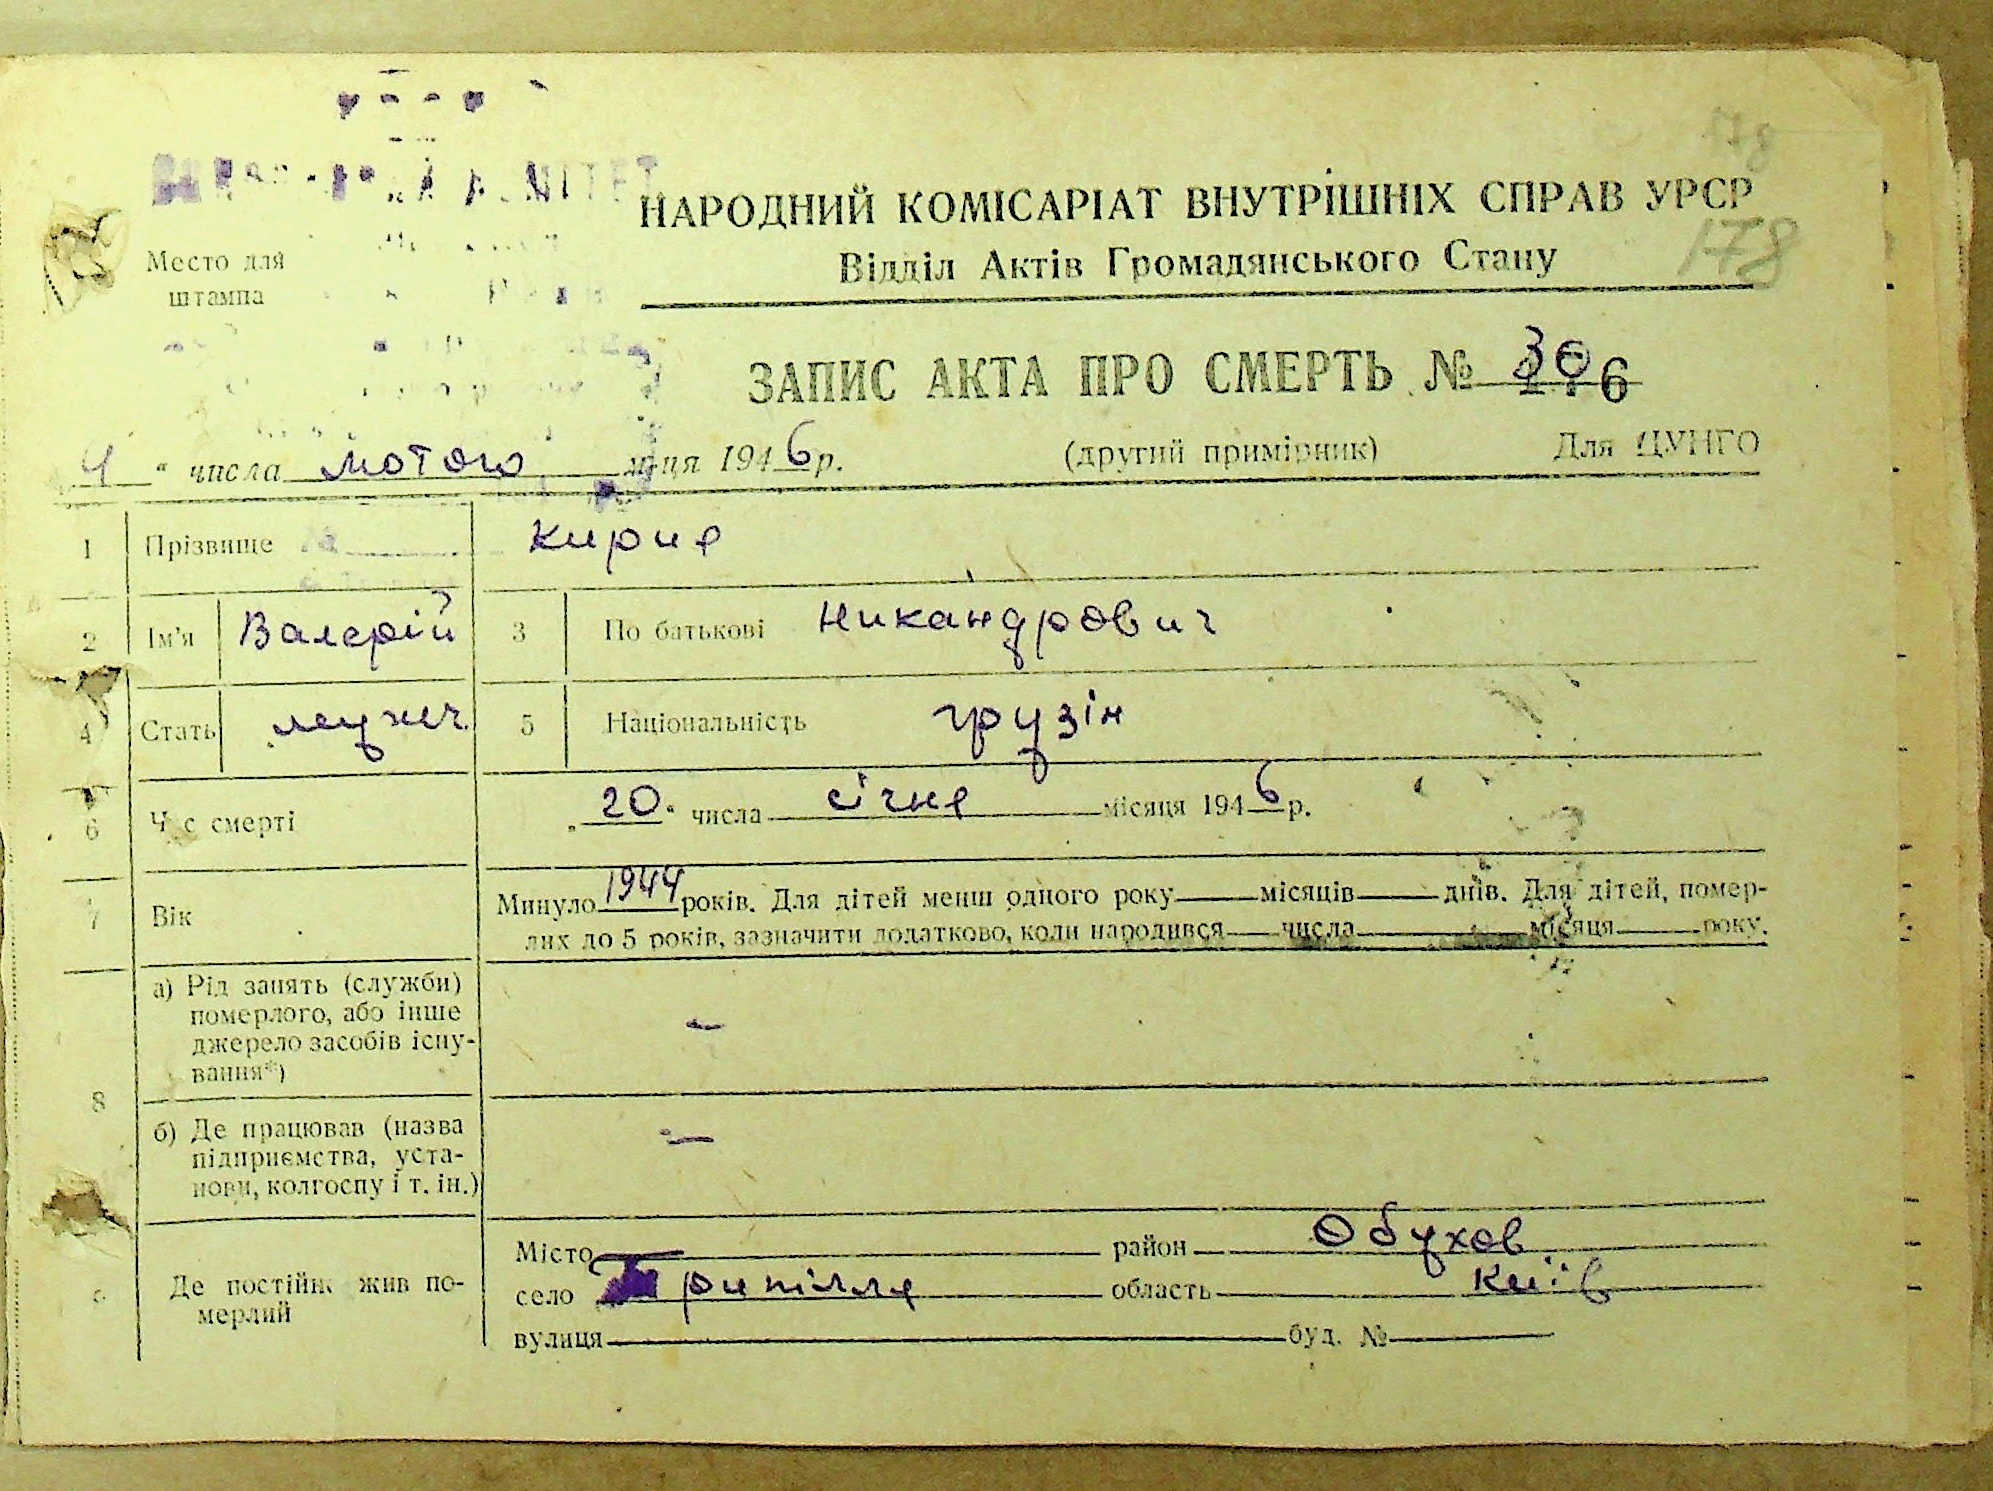 178
НАРОДНИЙ КОМІСАРІАТ ВНУТРІШНІХ СПРАВ УРСР
178
Відділ Актів Громадянського Стану
Место для
штампа
ЗАПИС АКТА ПРО СМЕРТЬ №
4 " числа лютого м-ця 1946 р. (другий примірник) Для ЦУНГО
1 Прізвище Кирия
2 Ім'я Валерій 3 По батькові Никандрович
4 Стать мужеч. 5 Національність грузін
6 Час смерті „20" числа січня місяця 1946 р.
7 Вік Минуло 1944 років. Для дітей менш одного року місяців днів. Для дітей, помер-
лих до 5 років, зазначити додатково, коли народився числа місяця року.
8 а) Рід занять (служби)
померлого, або інше
джерело засобів існу-
вання*) —
б) Де працював (назва
підприємства, уста-
нови, колгоспу і т. ін.) —
Де постійно жив по-
мерлий
Місто район Обухов
село Трипілля область Київ
вулиця буд. №